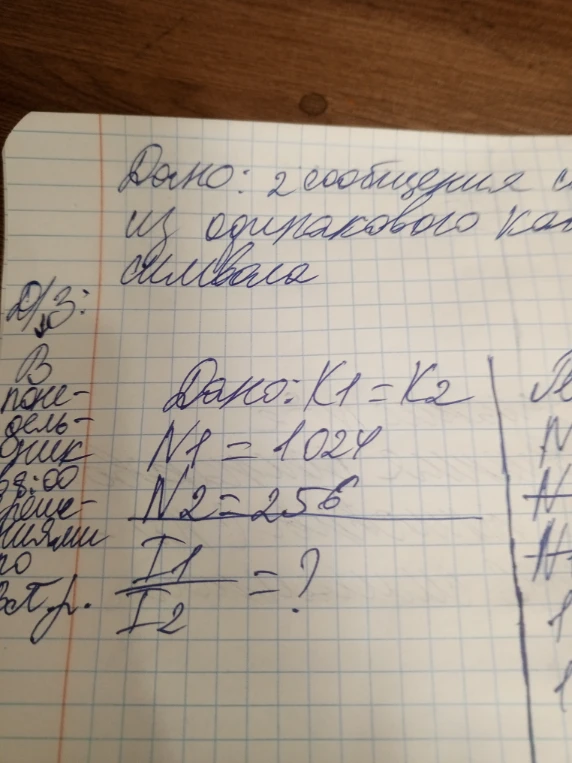 Дано: 2 сообщения с
из одиракового кол
символа
Д/З:
В
поне-
дель-
ник
8:00
реше-
ниями
по
вт. гр.
Дано: K1 = K2
N1 = 1024
N2 = 256
I1
I2
= ?
N
N
N
1
1